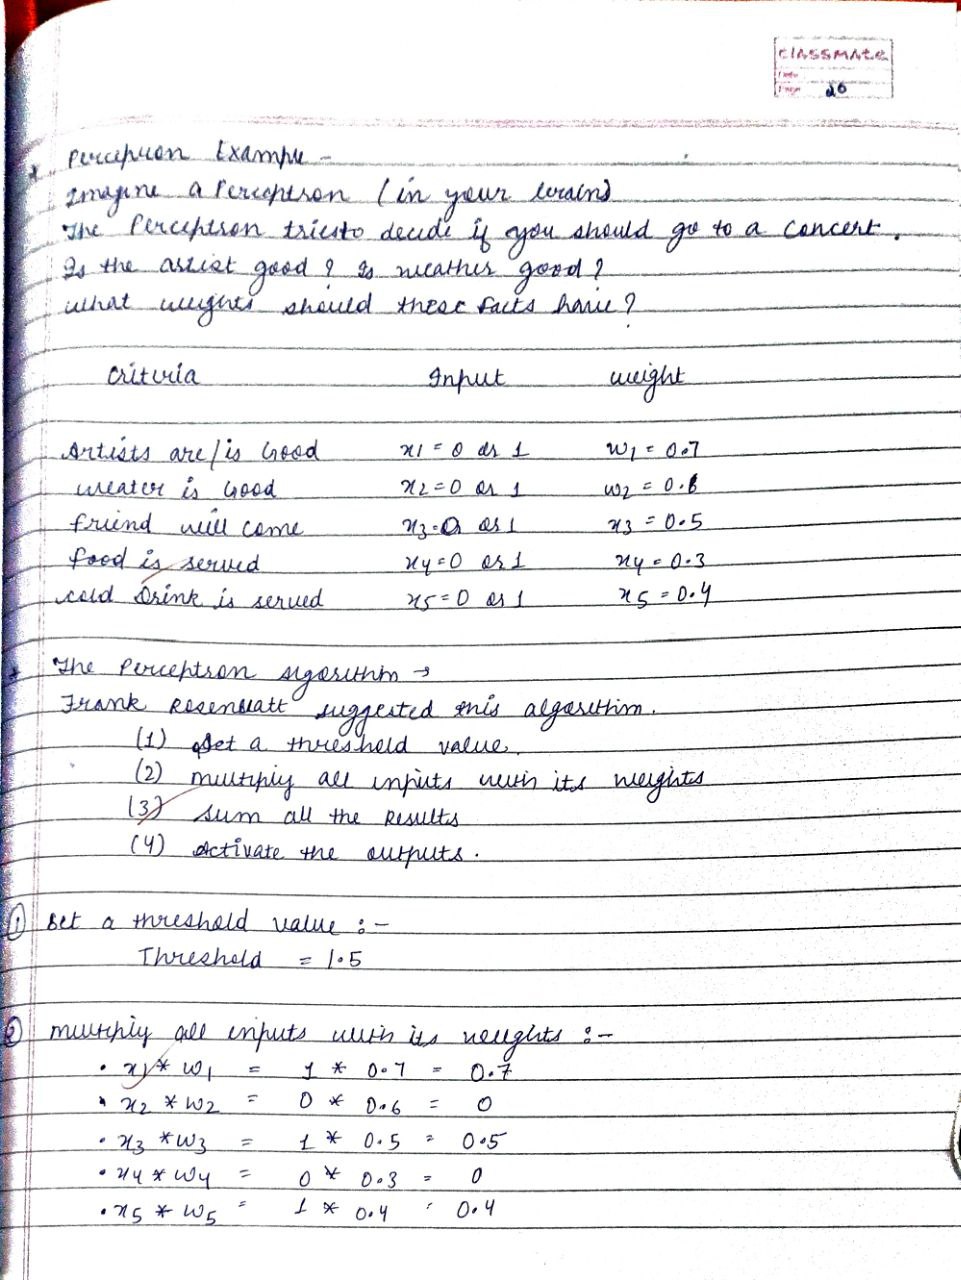 classmate
Date
Page 20
* Perceptron Example -
Imagine a Perceptron (in your brain)
The Perceptron tries to decide if you should go to a concert.
Is the artist good? Is weather good?
what weights should these facts have?
Criteria Input weight
Artists are/is Good x1 = 0 or 1 w1 = 0.7
weater is Good x2 = 0 or 1 w2 = 0.6
friend will come x3 = 0 or 1 x3 = 0.5
food is served x4 = 0 or 1 x4 = 0.3
cold Drink is served x5 = 0 or 1 x5 = 0.4
* The Perceptron algorithm →
Frank Rosenblatt suggested this algorithm.
(1) Set a threshold value.
(2) multiply all inputs with its weights
(3) Sum all the Results
(4) Activate the outputs.
① Set a threshold value :-
Threshold = 1.5
② multiply all inputs with its weights :-
• x1 * w1 = 1 * 0.7 = 0.7
• x2 * w2 = 0 * 0.6 = 0
• x3 * w3 = 1 * 0.5 = 0.5
• x4 * w4 = 0 * 0.3 = 0
• x5 * w5 = 1 * 0.4 = 0.4